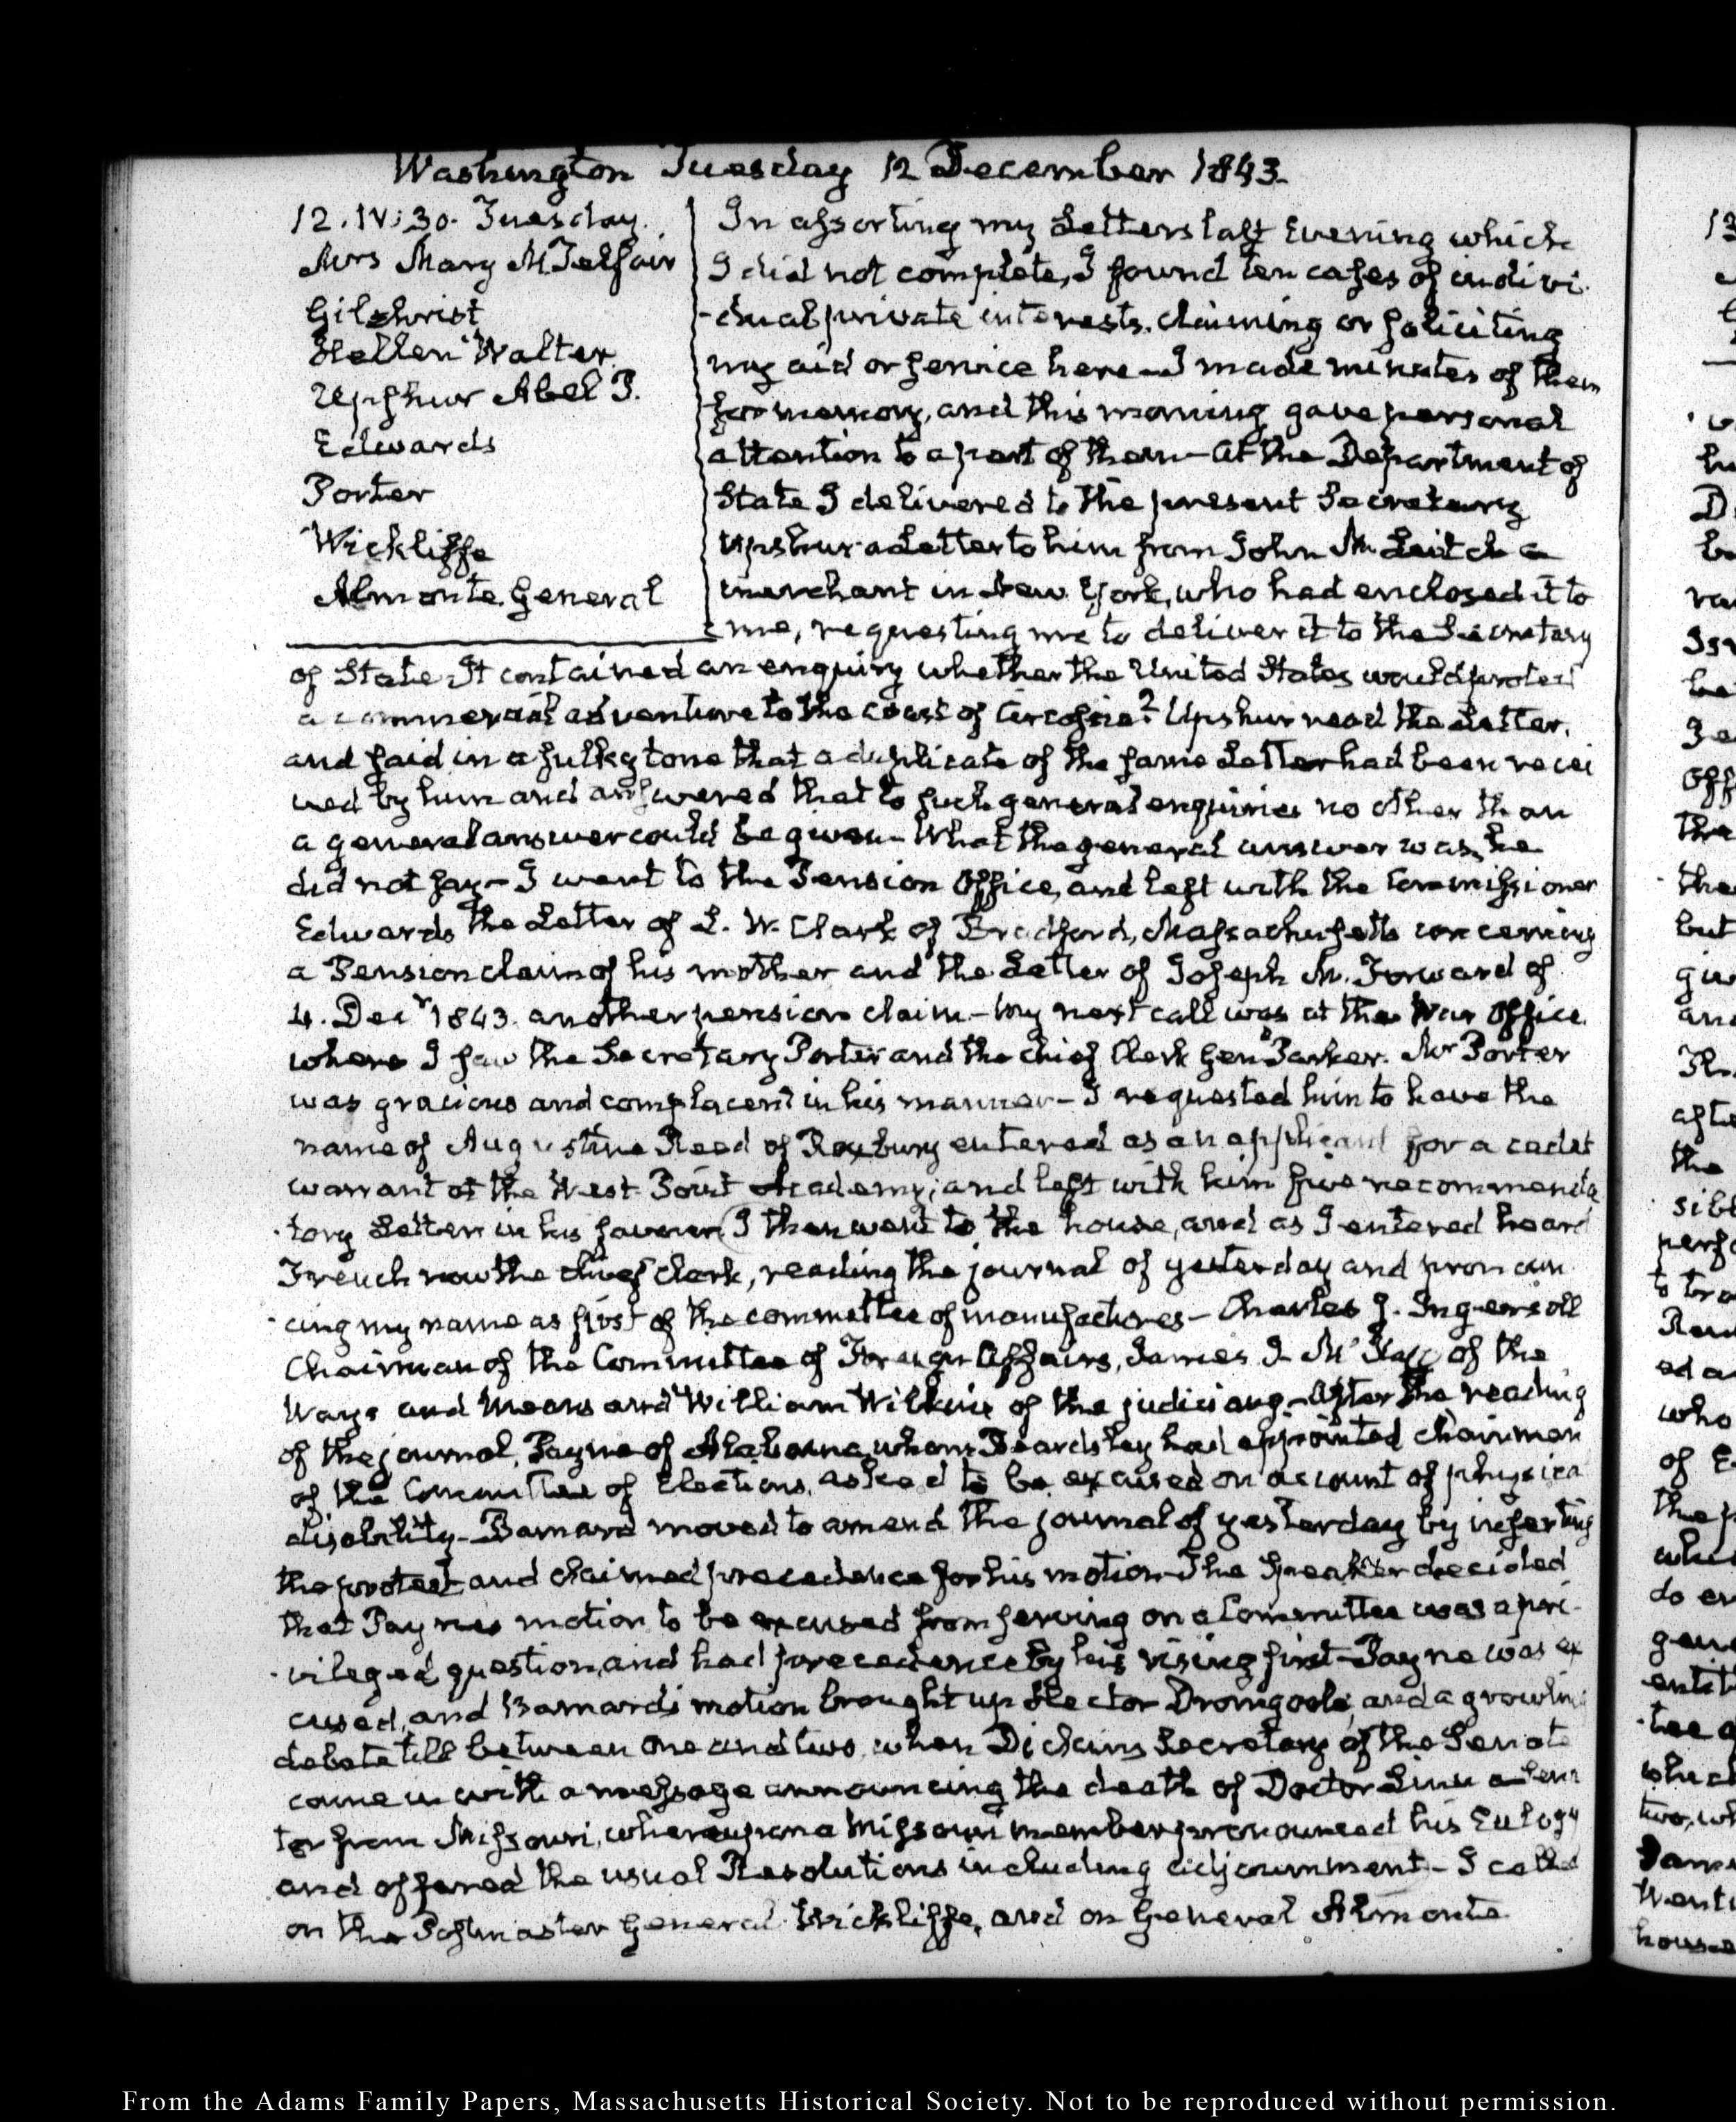 Washington Tuesday 12 December 1843.
12. IV:30. Tuesday.
Mrs Mary M Telfair
Gilchrist
Hellen Walter
Upshur Abel P.
Edwards
Porter
Wickliffe
Almonte General
In assorting my Letters last Evening which
I did not complete, I found ten cases of indivi-
-dual private interests, claiming or soliciting
my aid or service here—I made minutes of them
for memory, and this morning gave personal
attention to a part of them—At the Department of
State I delivered to the present Secretary
Upshur a Letter to him from John M. Leitch a
merchant in New York, who had enclosed it to
me, requesting me to deliver it to the Secretary
of State. It contained an enquiry whether the United States would protect
a commercial adventure to the coast of Circassia? Upshur read the Letter,
and said in a sulky tone that a duplicate of the same Letter had been recei
ved by him and answered that to such general enquiries no other than
a general answer could be given—What the general answer was, he
did not say—I went to the Pension Office, and left with the Commissioner
Edwards the Letter of L. W. Clark of Bradford, Massachusetts concerning
a Pension claim of his mother and the Letter of Joseph M. Forward of
4. Decr 1843. another pension claim—My next call was at the War Office
where I saw the Secretary Porter and the chief Clerk Genl Parker. Mr Porter
was gracious and complacent in his manner—I requested him to have the
name of Augustine Reed of Roxbury entered as an applicant for a cadet
warrant at the West-Point Academy; and left with him five recommenda
-tory Letters in his favour. I then went to the house, and as I entered heard
French now the chief clerk, reading the journal of yesterday and pronoun
-cing my name as first of the committee of manufactures—Charles J. Ingersoll
Chairman of the Committee of Foreign Affairs, James I. McKay of the
Ways and Means and William Wilkins of the judiciary—After the reading
of the journal, Payne of Alabama, whom Beardsley had appointed chairman
of the Committee of Elections, asked to be excused on account of physica
disability—Barnard moved to amend the journal of yesterday by inserting
the protest and claimed precedence for his motion—The Speaker decided
that Paynes motion to be excused from serving on a Committee was a pri-
-vileged question, and had precedence by his rising first—Payne was ex
cused, and Barnard's motion brought up Hector Dromgoole, and a growling
debate till between one and two, when Dickins Secretary of the Senate
came in with a message announcing the death of Doctor Linn a Sena
tor from Missouri, whereupon a Missouri member pronounced his Eulogy
and offered the usual Resolutions including adjournment—I called
on the Postmaster General Wickliffe, and on General Almonte
From the Adams Family Papers, Massachusetts Historical Society. Not to be reproduced without permission.